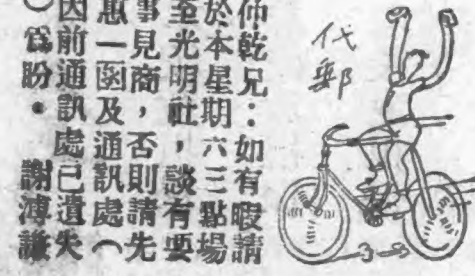 代郵
仲乾兄：如有暇請
於本星期六三點場
至光明社，談有要
事見商，否則請先
惠一函及通訊處（
因前通訊處已遺失
）爲盼。　謝溥謙